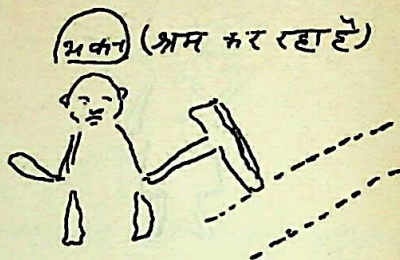 भक्त (श्रम कर रहा है)